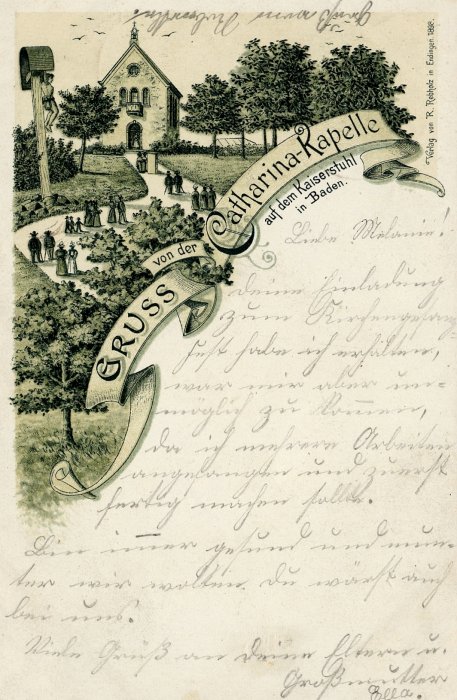 Verlag von K. Rebholz in Endingen 1898.
GRUSS
von der
Catharina-Kapelle
auf dem Kaiserstuhl
in Baden.
Liebe Melanie!
deine Einladung
zum Kirchengesang
fest habe ich erhalten,
war mir aber un-
möglich zu kommen,
da ich mehrere Arbeiten
angefangen und zuerst
fertig machen sollte.
Bin immer gesund und mun-
ter wir wollten du wärst auch
bei uns.
Viele Grüß an deine Eltern u.
Großmutter
Ella.